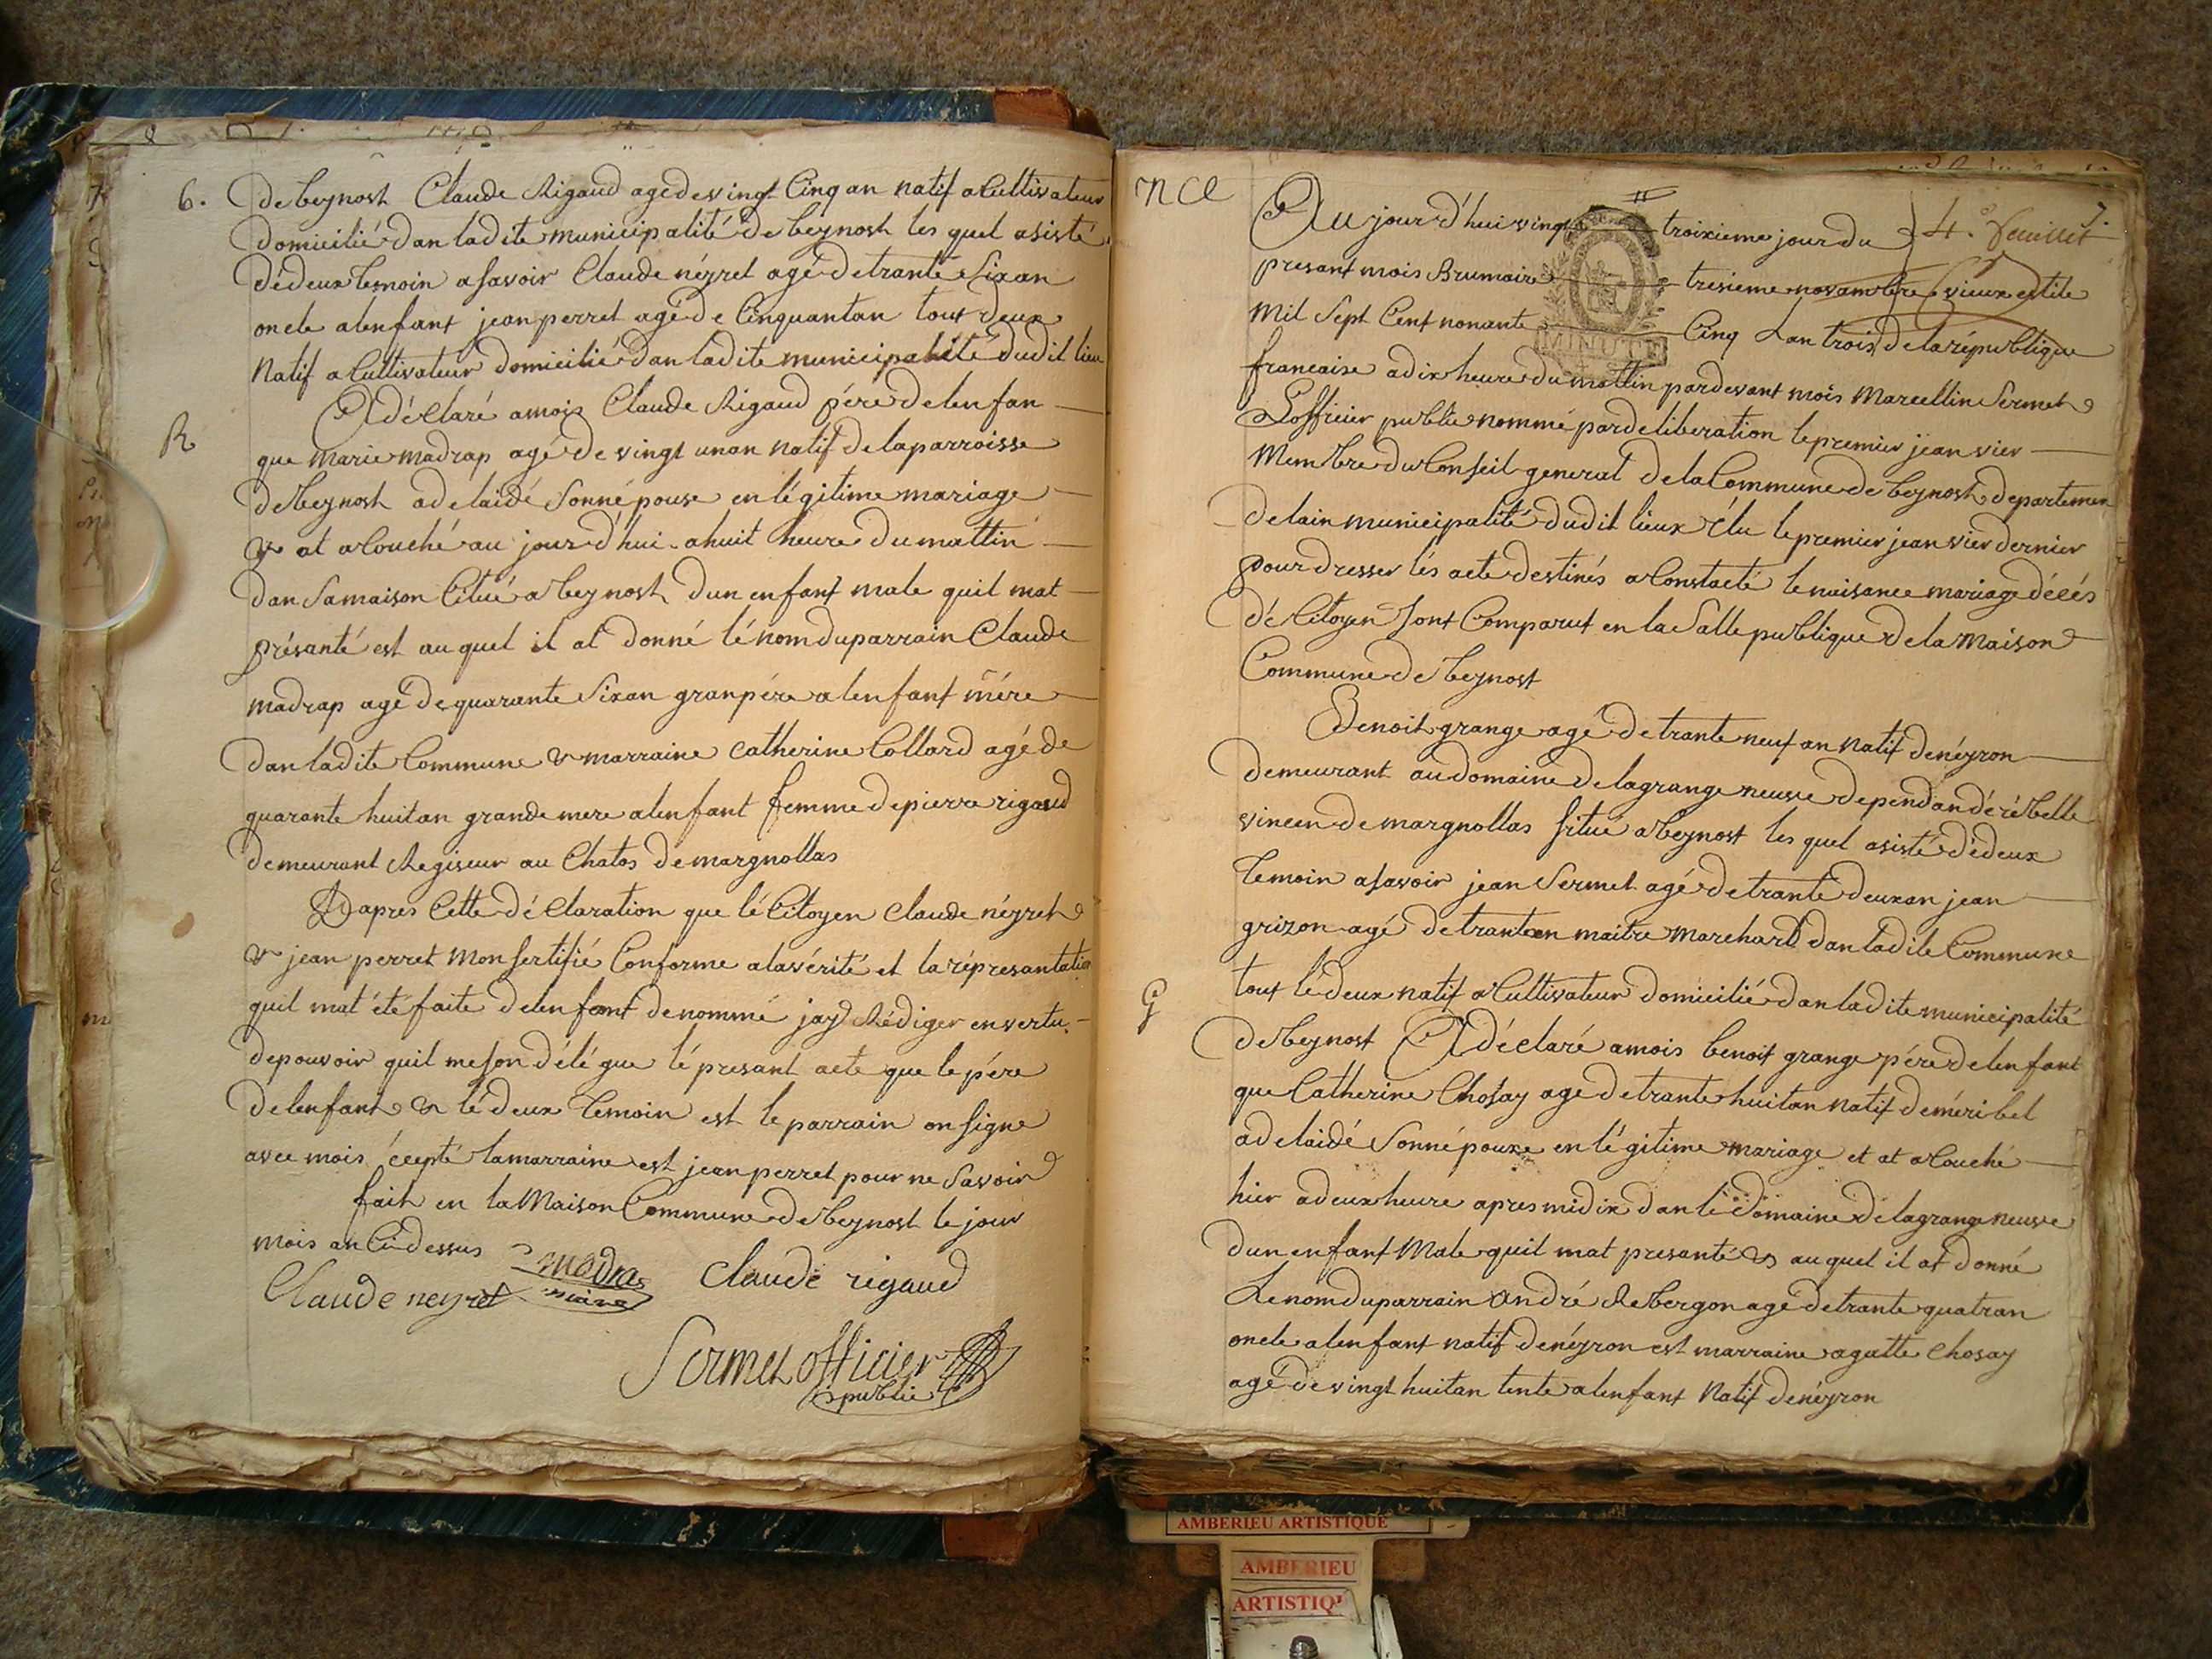 6. De beynost Claude Rigaud agé de vingt Cinq an natif a Cultivateur
Domicilié Dan ladite municipalité De beynost les quel asisté
dédeux temoin a savoir Claude néyret agé de trante Sixan
oncle alenfant jean perret agé De Cinquantan tout deux
Natif a Cultivateur Domicilié Dan ladite municipalité dudit lieu
A déclaré amois Claude Rigaud pére de lenfan
R
que marie madrap agé De vingt unan natif de laparroisse
De beynost adelaidé Sonnépouse en légitime mariage
& at acouché au jour d'hui a huit heure Dumattin
Dan Samaison Citué a beynost Dun enfant male quil mat
présanté est au quel il at donné lé nom duparrain Claude
madrap agé De quarante Sixan granpére alenfant mére
Dan ladite Commune & marraine Catherine Collard agé de
quarante huitan grande mere alenfant femme depierre rigaud
demeurant Regiseur au Chatos De margnollas
Dapres Cette Déclaration que lé Citoyen Claude néyret
& jean perret mon sertifié Conforme alavérité et la répresantation
quil mat été faite De lenfant denommé jay Rédiger en vertu
depouvoir quil me son délégue lé presant acte que le pére
De lenfant & lé deux Temoin est le parrain on signe
avec mois écepté lamarraine est jean perret pour ne Savoir
fait en la Maison Commune De beynost le jour
mois an Ci dessus
Claude neyret madra Claude rigaud
Sermet officier
public
NCe
Au jour d'hui vingt troixieme jour du 4.e feuillet 7
presant mois Brumaire tresieme novambre vieux estile
MINUTE
Mil Sept Cent nonante Cinq Lan trois de la république
francaise a dix heure du mattin pardevant mois Marcellin Sermet
Lofficier public nommé pardeliberation le premier jeanvier
Membre du Conseil general De la Commune De beynost departemen
De lain municipalité dudit lieux élu le premier jeanvier dernier
pour dresser lés acte destinés a Constacté le naisance mariage décés
dé Citoyen Sont Comparut en la Salle publique de la Maison
Commune De beynost
Benoit grange agé De trante neuf an natif denéyron
demeurant au domaine De lagrange neuve dependan dérébelle
vincen de margnollas situé a beynost les quel asisté dédeux
Temoin asavoir jean Sermet agé De trante deuxan jean
grizon agé De trantean maitre marchart Dan ladite Commune
tout lé deux natif a Cultivateur Domicilié Dan ladite municipalité
G
De beynost A déclaré amois benoit grange pére De lenfant
que Catherine Chosay age De trante huitan natif deméribel
adelaidé Sonnépouxe en légitime mariage et at acouché
hier adeux heure apres midix dan lé Domaine De lagrange neuve
Dun enfant Male quil mat presanté & auquel il at donné
Le nom duparrain André Rebergon agé De trante quatran
oncle alenfant natif denéyron est marraine agatte Chosay
agé De vingt huitan tente alenfant Natif denéyron
AMBERIEU ARTISTIQUE
AMBERIEU
ARTISTIQ'